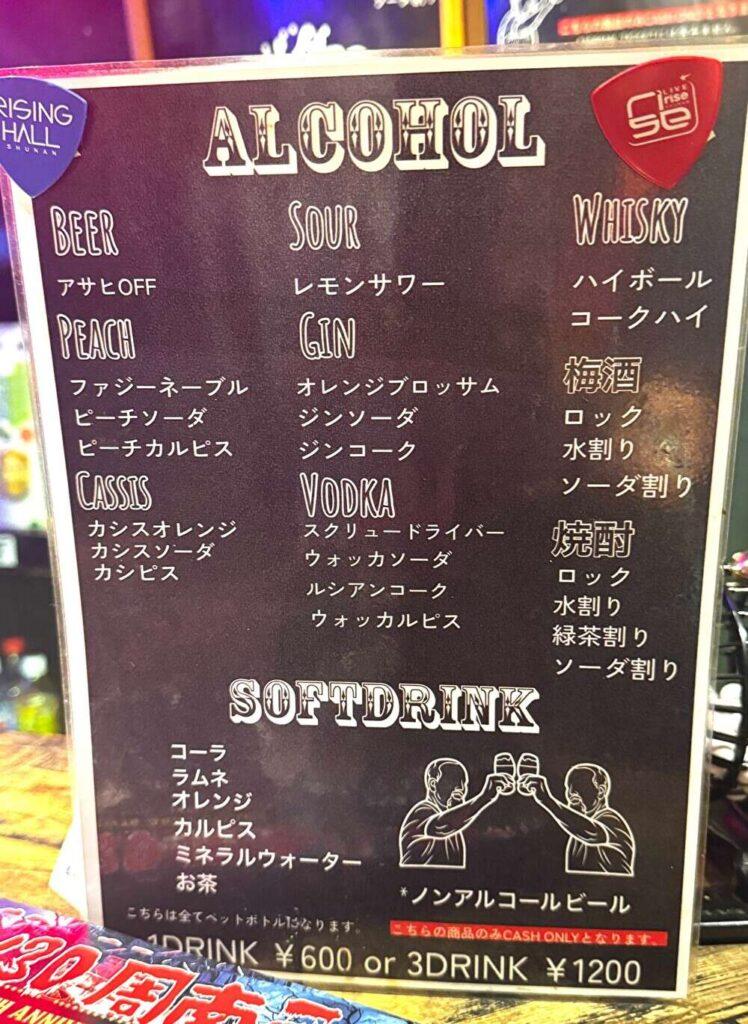 RISING
HALL
SHUNAN
LIVE
rise
ALCOHOL
BEER
アサヒOFF
PEACH
ファジーネーブル
ピーチソーダ
ピーチカルピス
CASSIS
カシスオレンジ
カシスソーダ
カシピス
SOUR
レモンサワー
GIN
オレンジブロッサム
ジンソーダ
ジンコーク
VODKA
スクリュードライバー
ウォッカソーダ
ルシアンコーク
ウォッカルピス
WHISKY
ハイボール
コークハイ
梅酒
ロック
水割り
ソーダ割り
焼酎
ロック
水割り
緑茶割り
ソーダ割り
SOFTDRINK
コーラ
ラムネ
オレンジ
カルピス
ミネラルウォーター
お茶
*ノンアルコールビール
こちらは全てペットボトルになります。
こちらの商品のみCASH ONLYとなります。
1DRINK ¥600 or 3DRINK ¥1200
周南